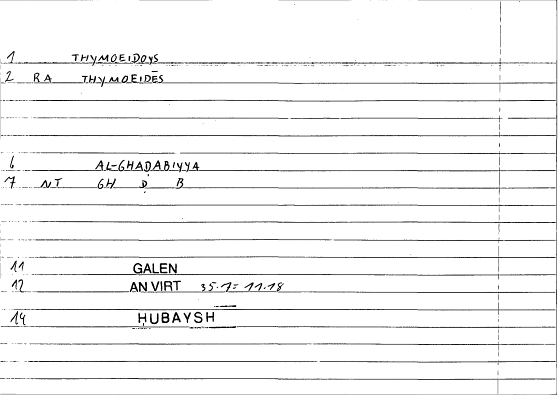 1 THYMOEIDOYS
2 RA THYMOEIDĒS
6 AL-GHAḌABIYYA
7 NT GH Ḍ B
11 GALEN
12 AN VIRT 35.1= 11.18
14 ḤUBAYSH